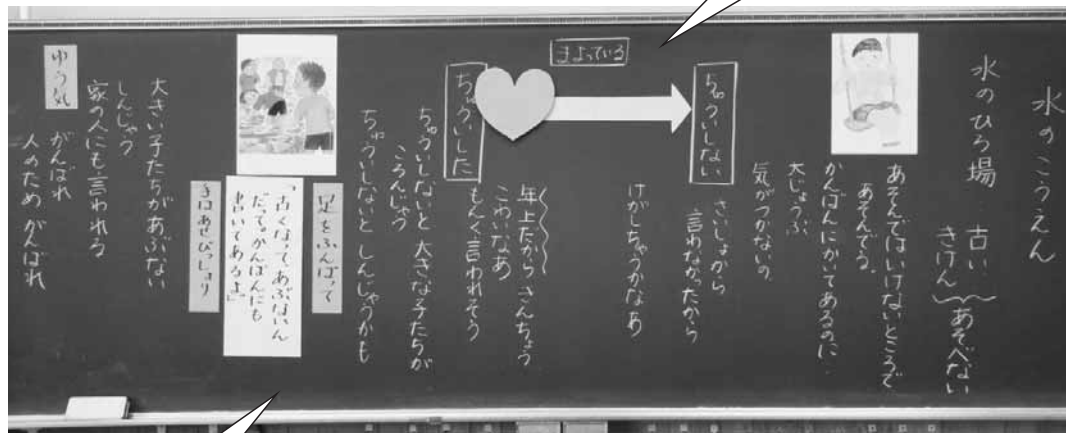 水のこうえん
水のひろ場　古い
きけん
あそべない
あそんではいけないところで
あそんでる。
かんばんにかいてあるのに。
大じょうぶ
気がつかないの。
ちゅういしない
さいしょから
言わなかったから
けがしちゃうかなあ
まよっている
ちゅういした
年上だから、さんちょう
こわいなあ
もんく言われそう
ちゅういしないと 大きな子たちが
ころんじゃう
ちゅういしないと しんじゃうかも
足をふんばって
「古くなって、あぶないん
だって。かんばんにも
書いてあるよ。」
手はあせびっしょり
大きい子たちがあぶない
しんじゃう
家の人にも言われる
ゆう気
がんばれ
人のため がんばれ